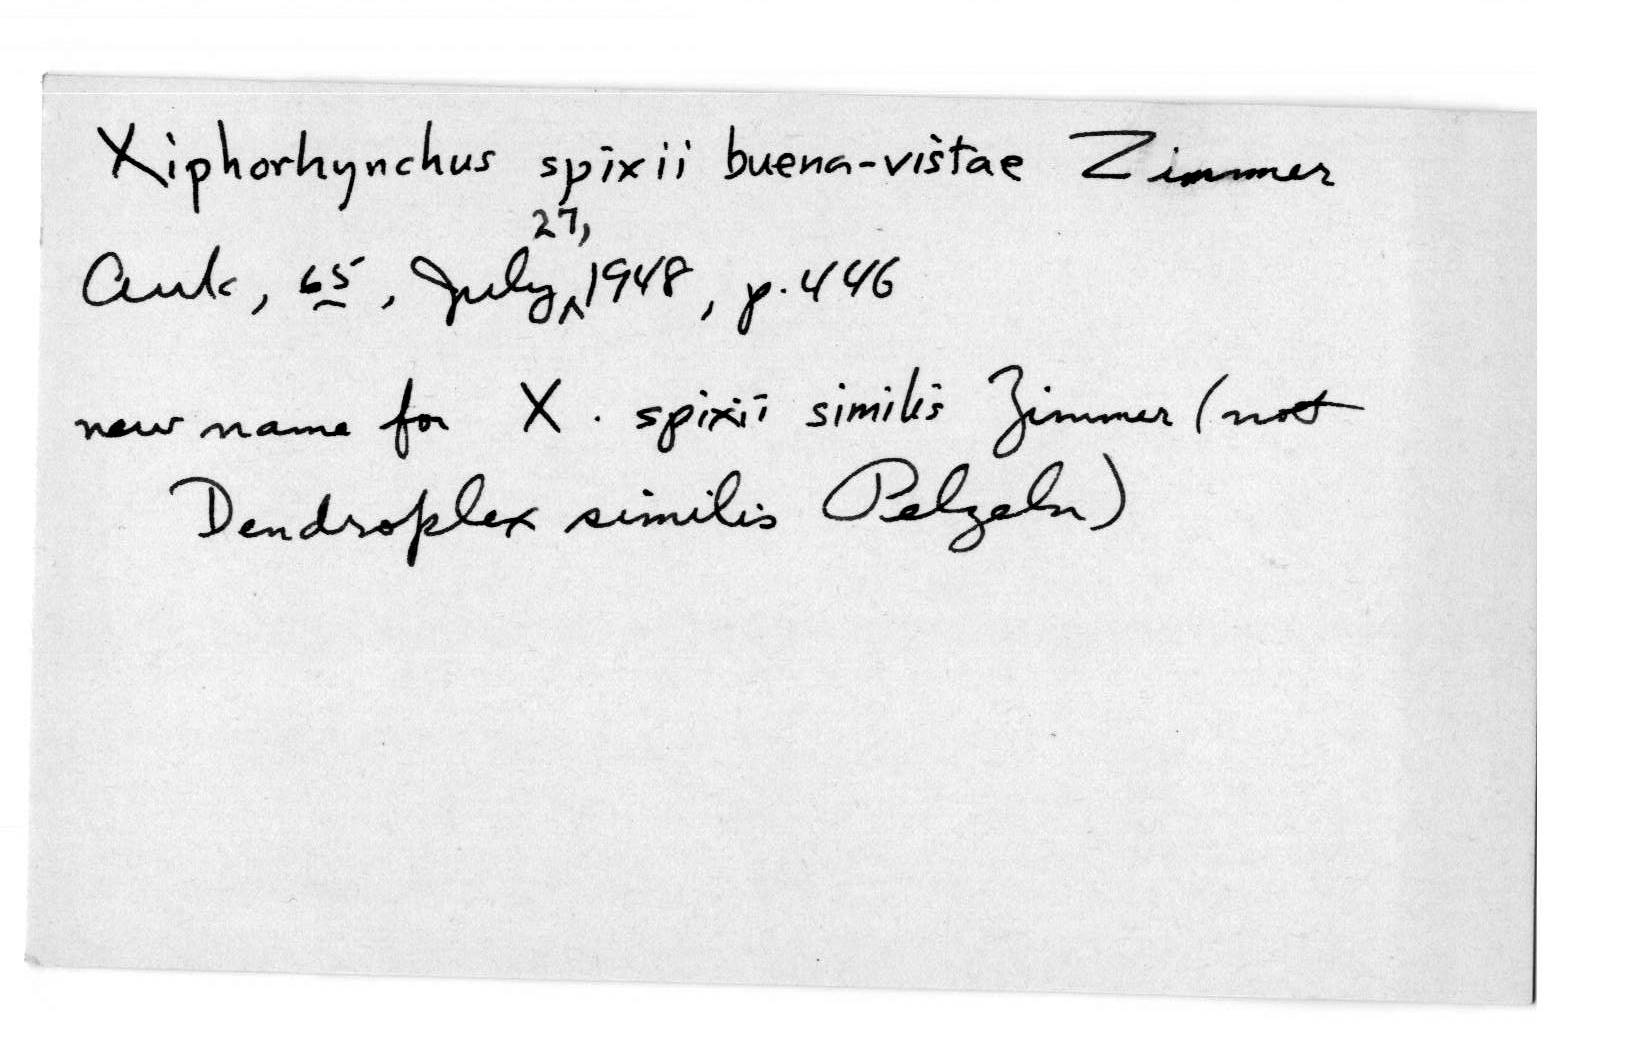 Xiphorhynchus spixii buena-vistae Zimmer
Auk, 65, July 27, 1948, p. 446
new name for X. spixii similis Zimmer (not
Dendroplex similis Pelzeln)